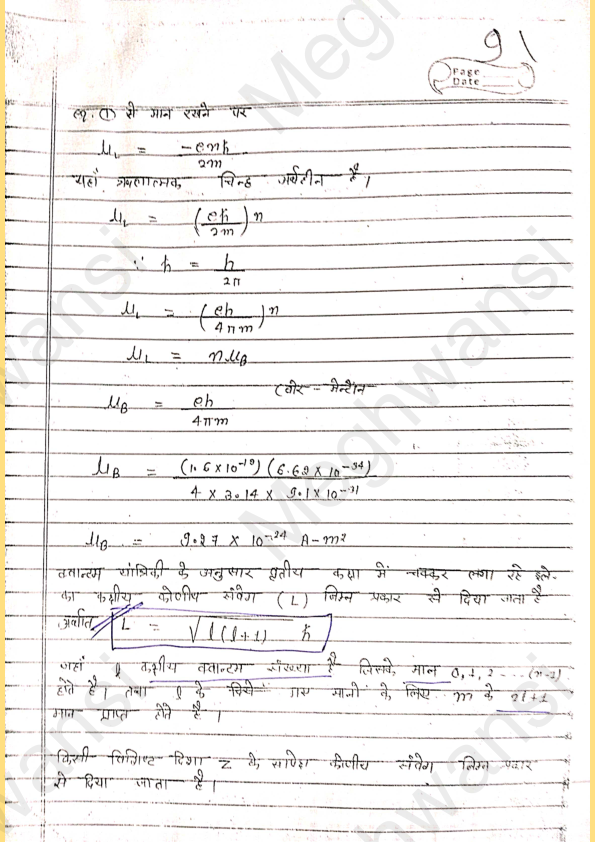 91
Page
Date
eq. ① से मान रखने पर
μL = -enħ / 2m
यहाँ ऋणात्मक चिन्ह अर्थहीन है।
μL = (eħ / 2m) n
∵ ħ = h / 2π
μL = (eh / 4πm) n
μL = nμB
μB = eh / 4πm (बोर - मेग्नेटोन
μB = (1.6 × 10⁻¹⁹) (6.62 × 10⁻³⁴) / 4 × 3.14 × 9.1 × 10⁻³¹
μB = 9.27 × 10⁻²⁴ A-m²
क्वान्टम यांत्रिकी के अनुसार कक्षा में चक्कर लगा रहे इले.
का कक्षीय कोणीय संवेग (L) निम्न प्रकार से दिया जाता है
अर्थात L = √l(l+1) ħ
जहां l कक्षीय क्वान्टम संख्या है जिसके मान 0,1,2 ... (n-1)
होते है। तथा l के किसी मानो के लिए m के 2l+1
मान प्राप्त होते है।
किसी विशिष्ट दिशा Z के सापेक्ष कोणीय संवेग निम्न प्रकार
से दिया जाता है।
Meghwansi